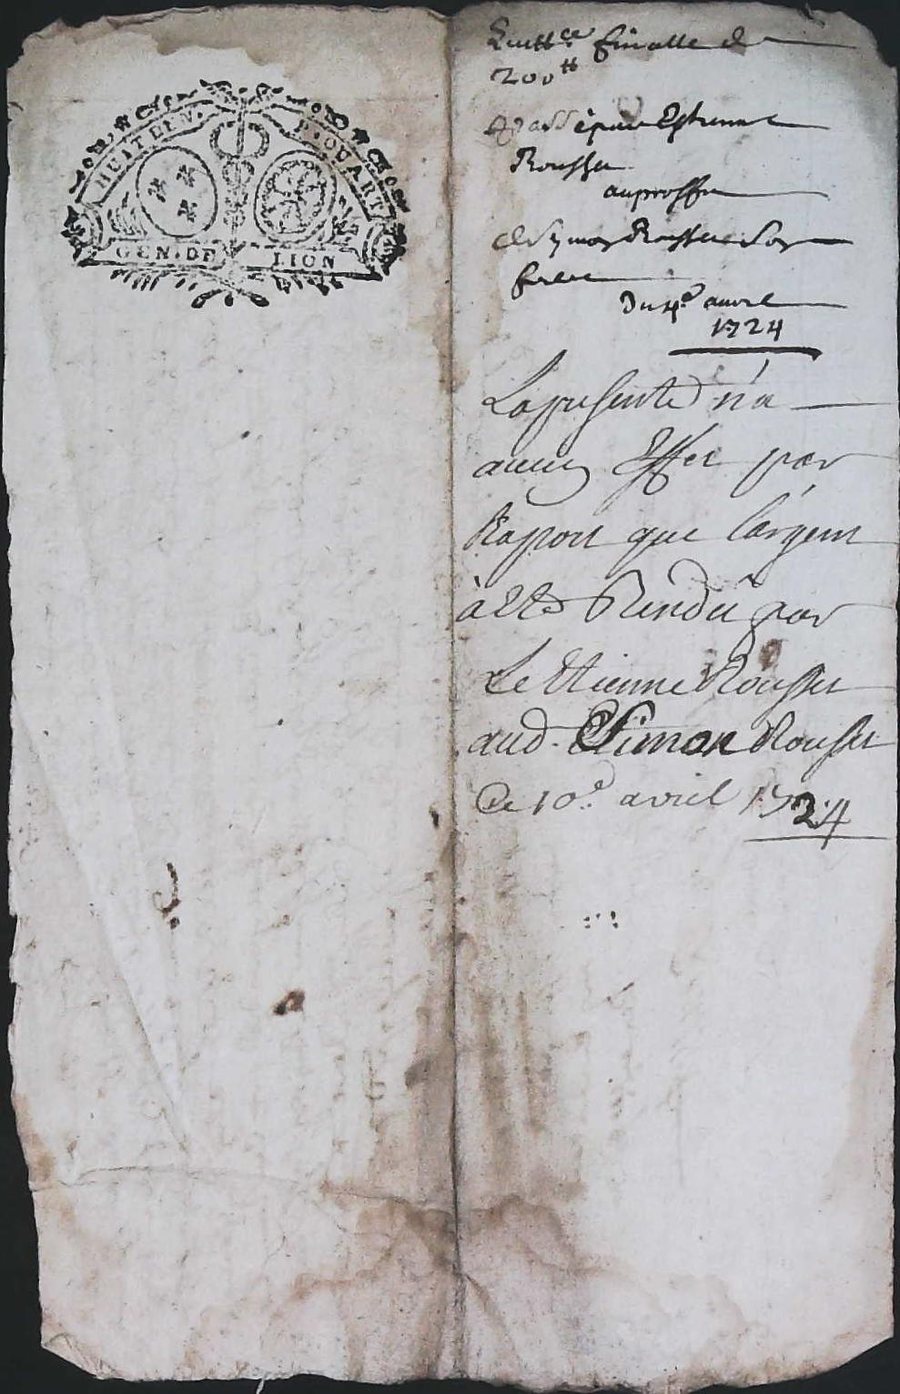 HUIT DEN. P. QUART
GEN. DE LION
Quittce finalle de
200tt
passé par Estienne
Rousset
au proffit
de Simon Rousset son
frere
Du 4e avvril
1724
La presente n'a
aucun Effet par
Raport que l'argent
à été Rendû par
Le Etienne Rousset
aud. Simon Rousset
Ce 10e avril 1724